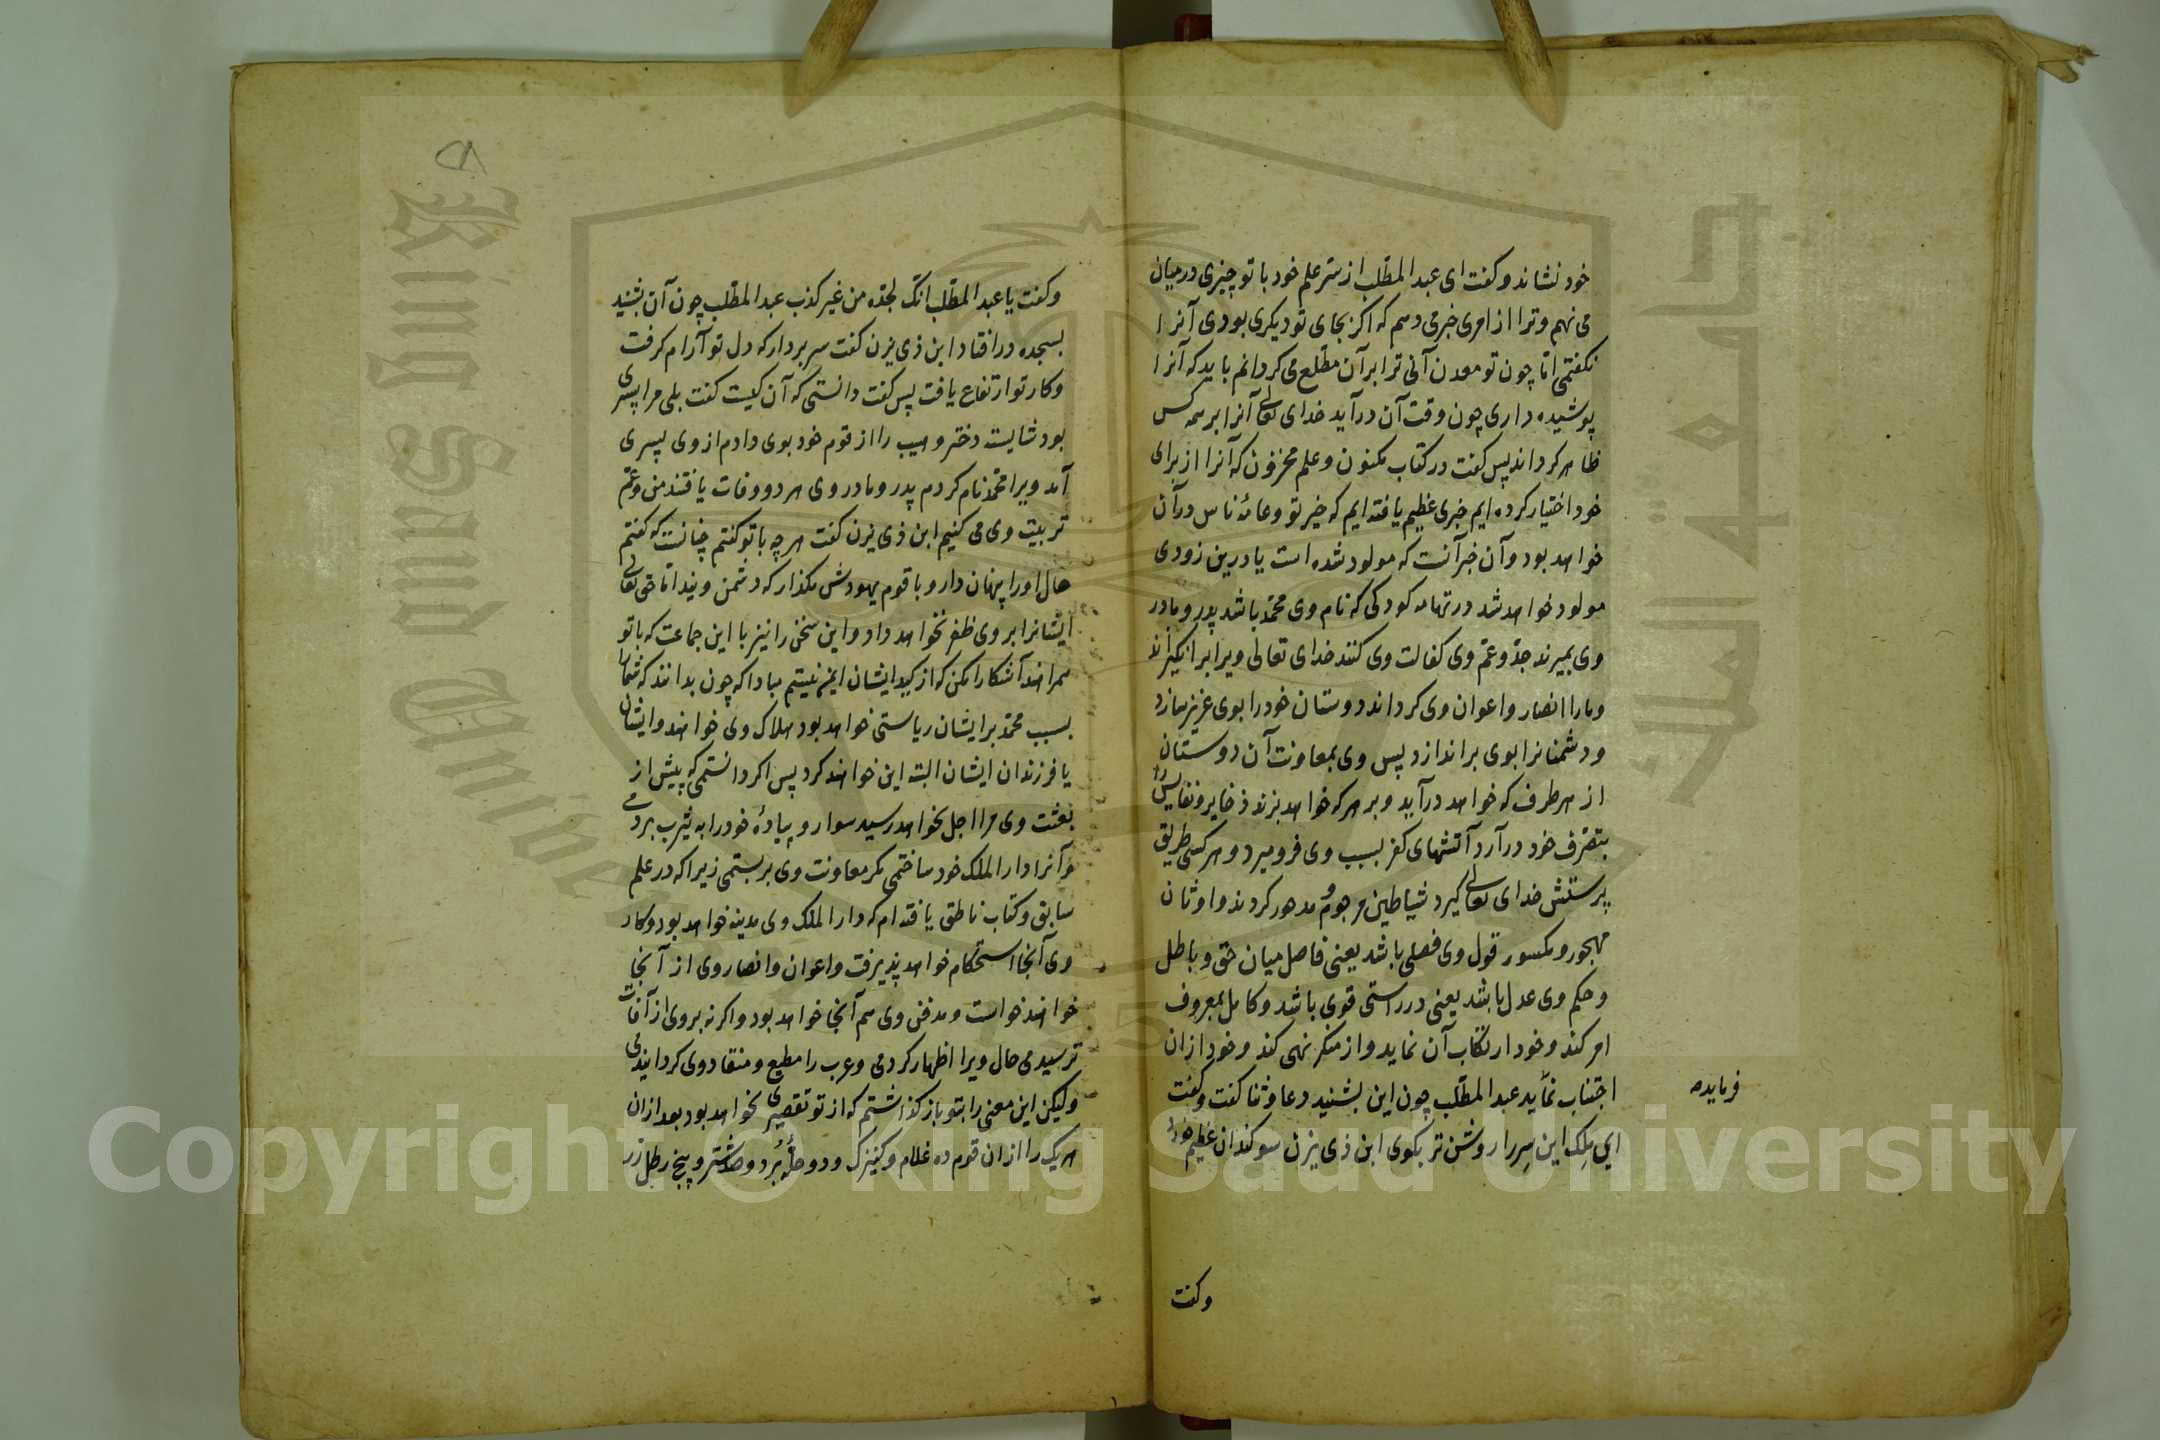 خود نشاند و کفت ای عبد المطّلب از سرّ علم خود با تو چیزی درمیان
می نهم و ترا از امری خبر می دهم که اکر بجای تو دیکری بودی آنرا
نکفتمی امّا چون تو معدن آنی ترا بر آن مطّلع می کردانم باید که آنرا
پوشیده داری چون وقت آن درآید خدای تعالی آنرا بر همه کس
ظاهر کرداند پس کفت در کتاب مکنون و علم مخزون که آنرا از برای
خود اختیار کرده ایم خبری عظیم یافته ایم که خیر تو و عامّهٔ ناس در آن
خواهد بود و آن خبر آنست که مولود شده است یا درین زودی
مولود خواهد شد در تهامه کودکی که نام وی محمّد باشد پدر و مادر
وی بمیرند جدّ و عمّ وی کفالت وی کنند خدای تعالی ویرا برانکیزاند
و مارا انصار و اعوان وی کرداند دوستان خود را بوی عزیز سازد
و دشمنانرا بوی براندازد پس وی بمعاونت آن دوستان
از هر طرف که خواهد درآید و بر هر که خواهد بزند ذخایر و نفایس را
بتصرّف خود درآرد آتشهای کفر بسبب وی فرو میرد و هر کسی طریق
پرستش خدای تعالی کیرد شیاطین مرجوم و مدهور کردند و اوثان
مهجور و مکسور قول وی فصلی باشد یعنی فاصل میان حق و باطل
و حکم وی عدل باشد یعنی در راستی قوی باشد و کامل بمعروف
امر کند و خود ارتکاب آن نماید و از منکر نهی کند و خود از ان
اجتناب نماید عبد المطّلب چون این بشنید دعا و ثنا کفت و کفت
ای ملک این سِر را روشن تر بکوی ابن ذی یزن سوکندان عظیم خورد
فرمایده
وکفت
وکفت یا عبد المطّلب انک لجدّه من غیر کذب عبد المطّلب چون آن بشنید
بسجده در افتاد ابن ذی یزن کفت سر بردار که دل تو آرام کرفت
و کار تو ارتفاع یافت پس کفت دانستی که آن کیست کفت بلی مرا پسری
بود شایسته دختر وهیب را از قوم خود بوی دادم از وی پسری
آمد ویرا محمّد نام کردم پدر و مادر وی هر دو وفات یافتند من و عمّ
تربیت وی می کنیم ابن ذی یزن کفت هر چه با تو کفتم چنانست که کفتم
حال او را پنهان دار و با قوم یهودش مکذار که دشمن ویند امّا حق تعالی
ایشانرا بر وی ظفر نخواهد داد و این سخن را نیز با این جماعت که با تو
همراهند آشکارا مکن که از کید ایشان ایمن نیستیم مبادا که چون بدانند که شما را
بسبب محمّد بر ایشان ریاستی خواهد بود هلاک وی خواهند و ایشان
یا فرزندان ایشان البته این خواهند کرد پس اکر دانستمی که پیش از
بعثت وی مرا اجل نخواهد رسید سوار و پیادهٔ خود را به یثرب بردمی
و آنرا دار الملک خود ساختمی کمر معاونت وی بربستمی زیرا که در علم
سابق و کتاب ناطق یافته ام که دار الملک وی مدینه خواهد بود و کار
وی آنجا استحکام خواهد پذیرفت و اعوان و انصار وی از آنجا
خواهند خواست و مدفن وی هم آنجا خواهد بود و اکر نه بر وی از آفات
ترسیدمی حال ویرا اظهار کردمی و عرب را مطیع و منقاد وی کردانیدمی
ولیکن این معنی را بتو باز کذاشتم که از تو تقصیری نخواهد بود بعد ازان
هر یک را از ان قوم ده غلام و کنیزک و دو حلّهٔ برد و صد شتر و پنج رطل زر